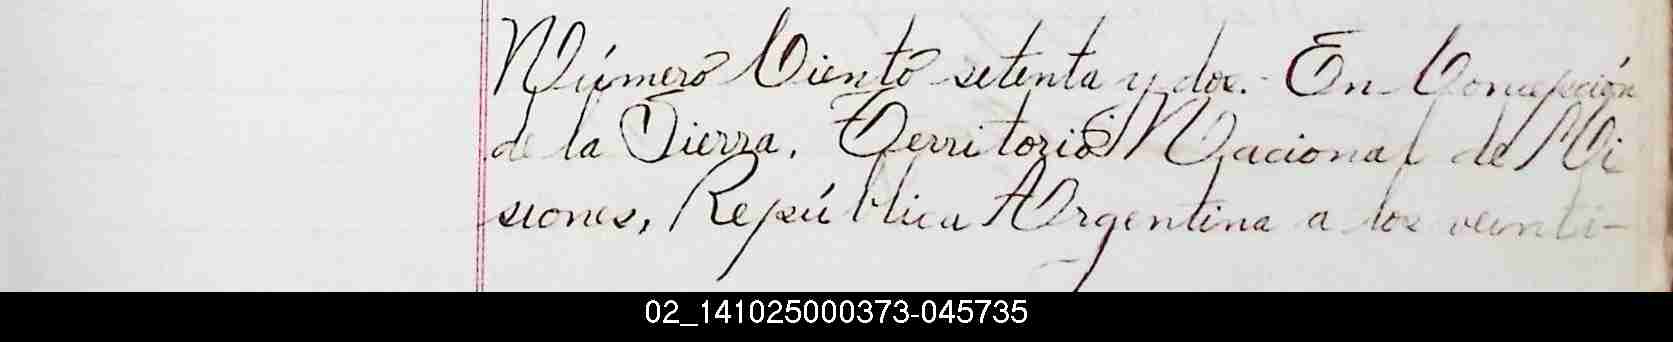 Número Ciento setenta y dos.- En Concepción
de la Sierra, Territorio Nacional de Mi
siones, República Argentina a los veinti-
02_141025000373-045735